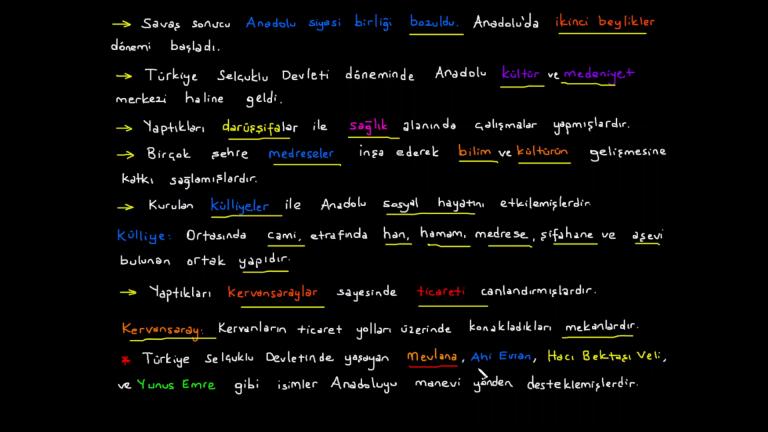 → Savaş sonucu Anadolu siyasi birliği bozuldu. Anadolu'da ikinci beylikler
dönemi başladı.
→ Türkiye Selçuklu Devleti döneminde Anadolu kültür ve medeniyet
merkezi haline geldi.
→ Yaptıkları darüşşifalar ile sağlık alanında çalışmalar yapmışlardır.
→ Birçok şehre medreseler inşa ederek bilim ve kültürün gelişmesine
katkı sağlamışlardır.
→ Kurulan külliyeler ile Anadolu sosyal hayatını etkilemişlerdir.
Külliye: Ortasında cami, etrafında han, hamam, medrese, şifahane ve aşevi
bulunan ortak yapıdır.
→ Yaptıkları kervansaraylar sayesinde ticareti canlandırmışlardır.
Kervansaray: Kervanların ticaret yolları üzerinde konakladıkları mekanlardır.
* Türkiye Selçuklu Devletinde yaşayan Mevlana, Ahi Evran, Hacı Bektaşı Veli,
ve Yunus Emre gibi isimler Anadoluyu manevi yönden desteklemişlerdir.